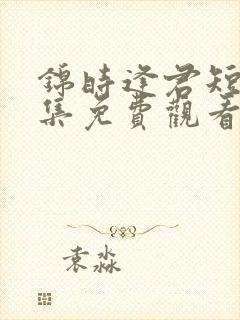 錦時逢君短
集免費觀看
袁淼